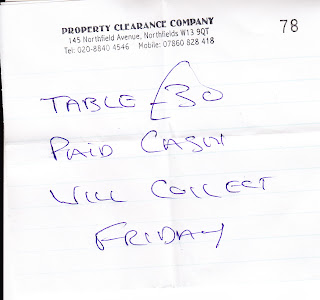 PROPERTY CLEARANCE COMPANY
145 Northfield Avenue, Northfields W13 9QT
Tel: 020-8840 4546 Mobile: 07860 828 418
78
TABLE £30
PAID CASH
WILL COLLECT
FRIDAY